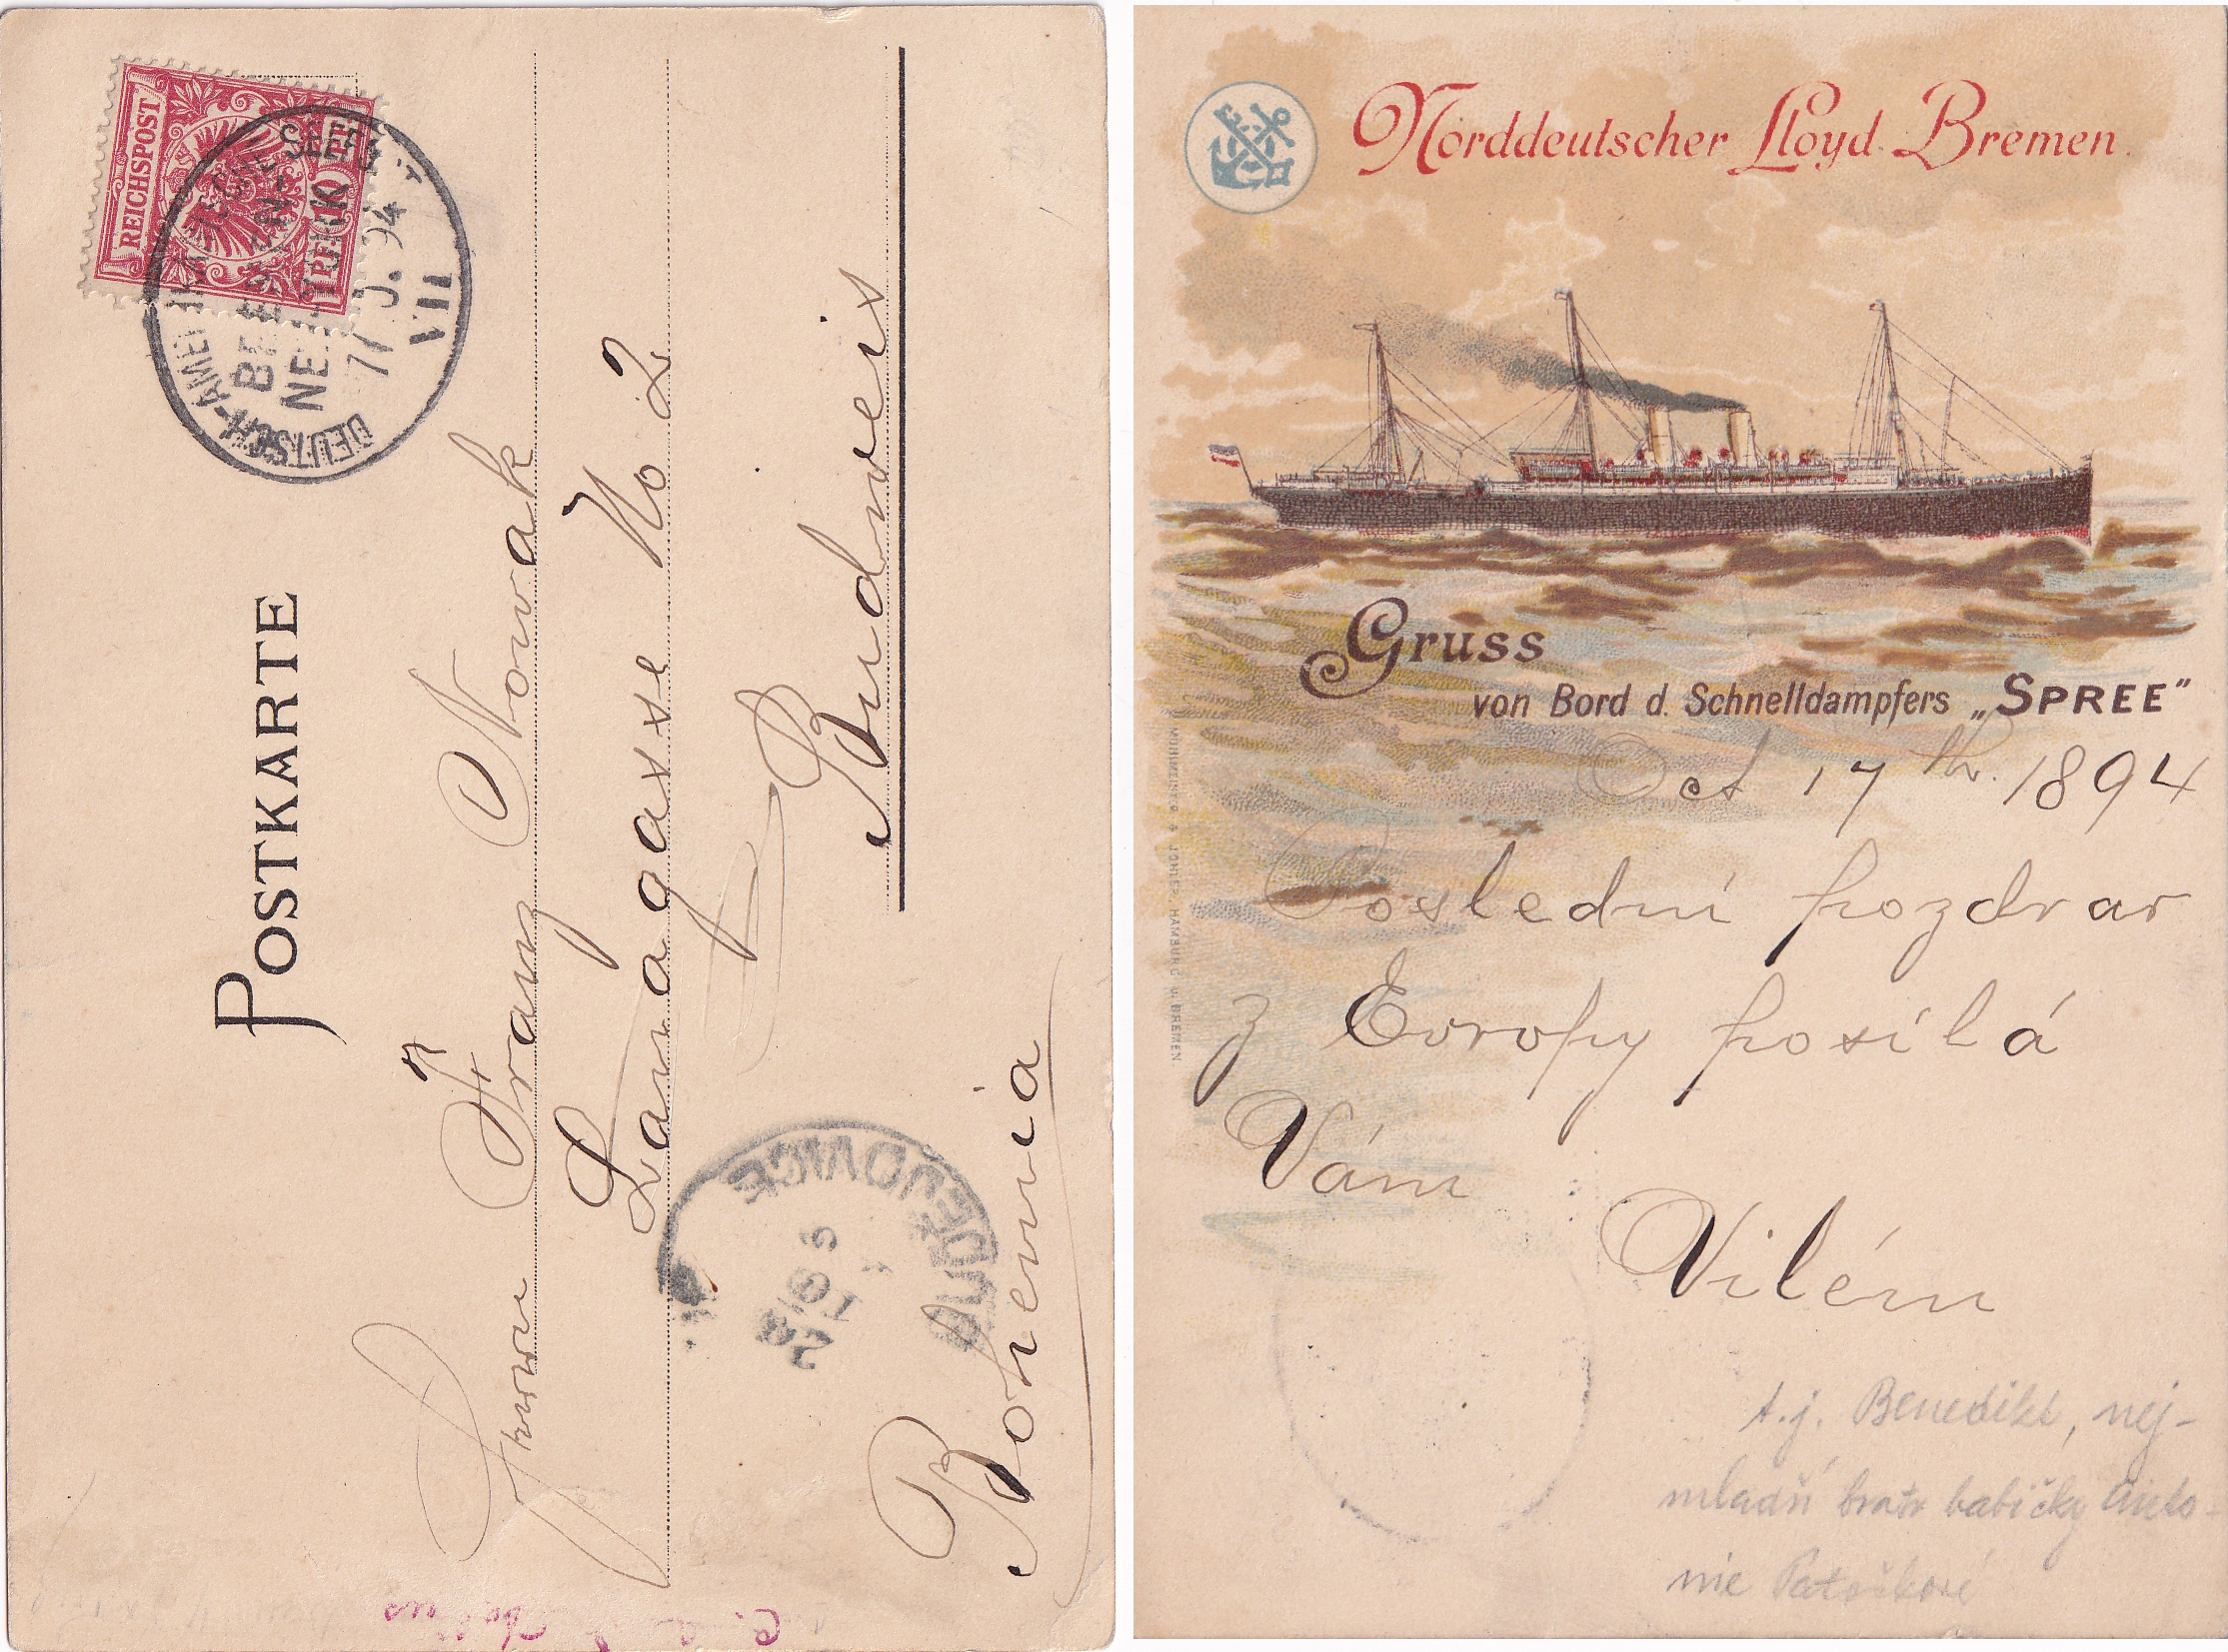 REICHSPOST
10
DEUTSCH-AMERIK
SEEPOST
BREMEN-
NEW-YORK
17
94
VII
POSTKARTE
Franz Nowak
Langasse No 2
Budweis
Bohemia
BUDĚJOVICE
Norddeutscher Lloyd Bremen.
Gruss
von Bord d. Schnelldampfers „SPREE"
Oct 17 th. 1894
Poslední pozdrav
z Evropy posílá
Vám
Vilém
t.j. Benedikt, nej-
mladší bratr babičky Anto-
nie Patočkové
MÜHLMEISTER & JOHLER, HAMBURG u. BREMEN